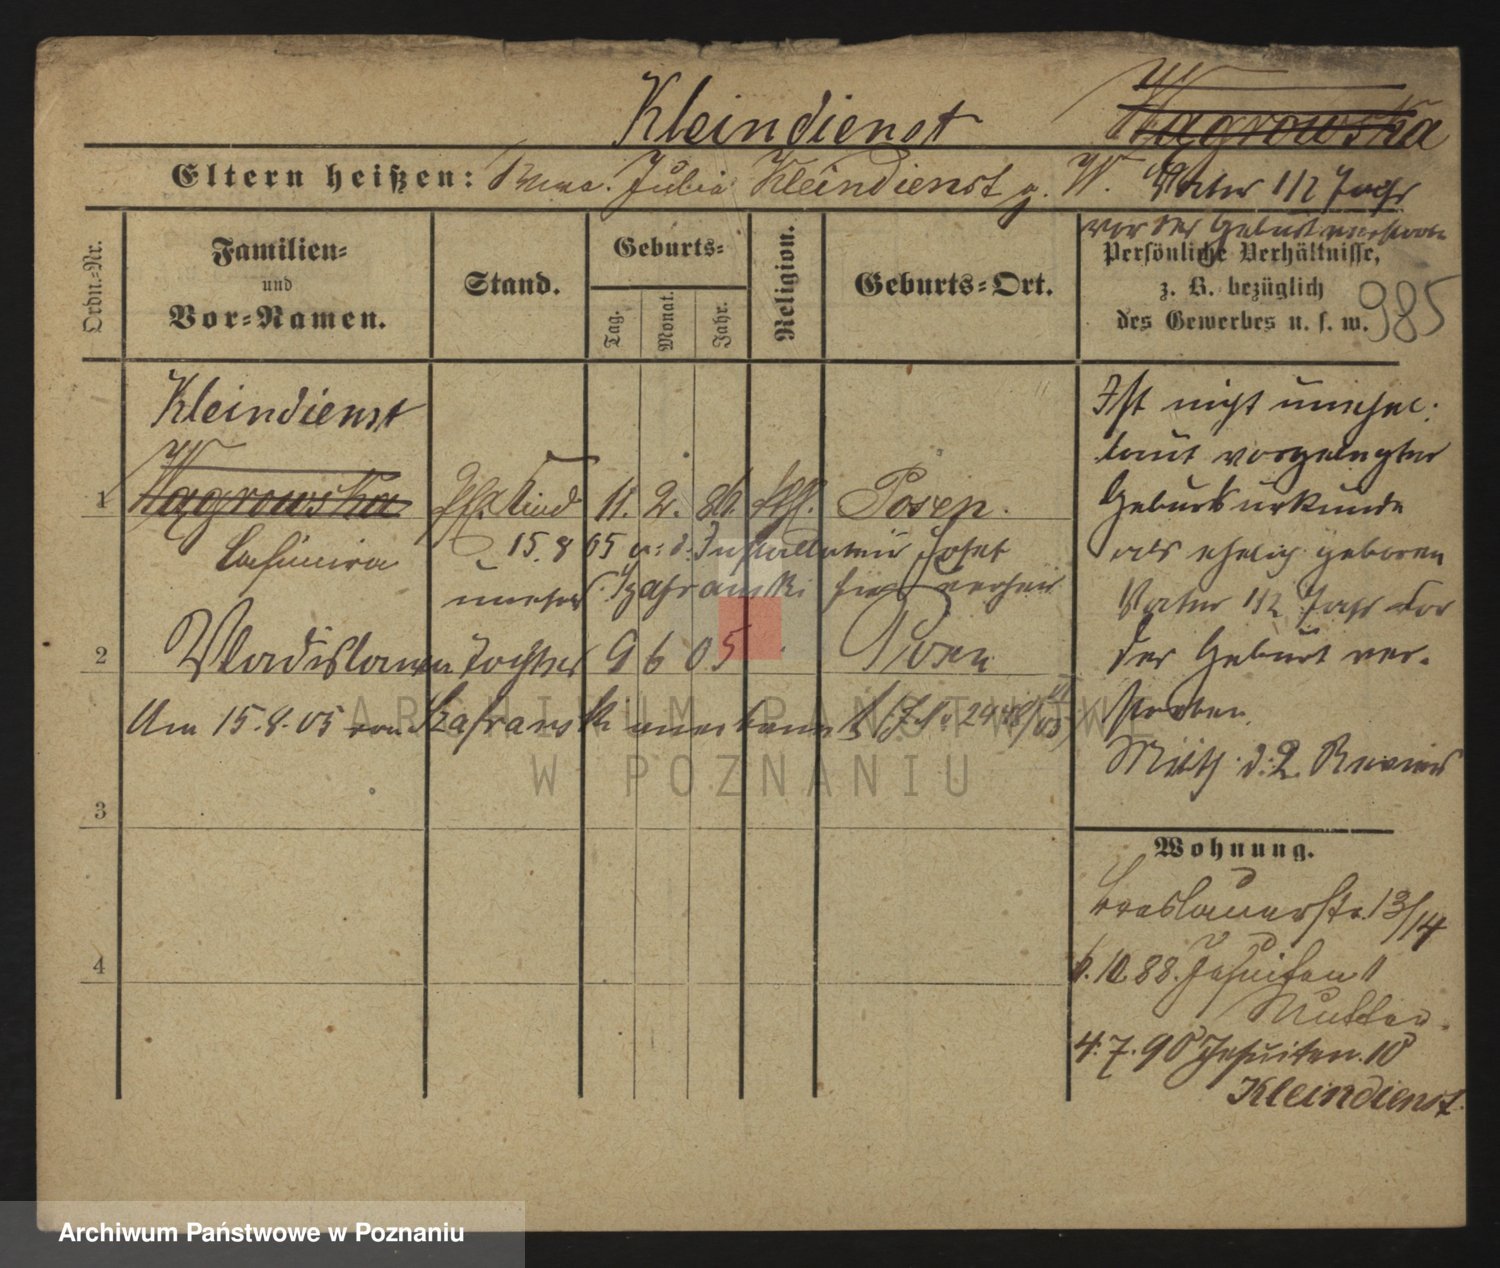 Kleindienst Wagrowska
Eltern heißen: Julia Kleindienst g. W. Vater 1/2 Jahr
vor der Geburt verstorben
Ordn.=Nr.
Familien=
und
Vor=Namen.
Stand.
Geburts=
Tag.
Monat.
Jahr.
Religion.
Geburts=Ort.
Persönliche Verhältnisse,
z. B. bezüglich
des Gewerbes u. s. w.
985
Kleindienst
1 Wagrowska Kind 11. 2. 86. kth. Posen.
Casimira 15.8 05 Josef
unehel. Szafranski
2 Vladislawa Tochter 9 6 05 Posen
Am 15.8.05 von Szafranski anerkannt
3
4
Ist nicht unehel.
laut vorgelegter
Geburtsurkunde
als ehelich geboren
Vater 1/2 Jahr vor
der Geburt ver-
storben.
Mitth. d. 2. Revier
Wohnung.
Breslauerstr. 13/14
6.10.88. Jesuiten 11
Mutter.
4.7.90 Jesuiten. 10
Kleindienst.
ARCHIWUM PAŃSTWOWE
W POZNANIU
Archiwum Państwowe w Poznaniu